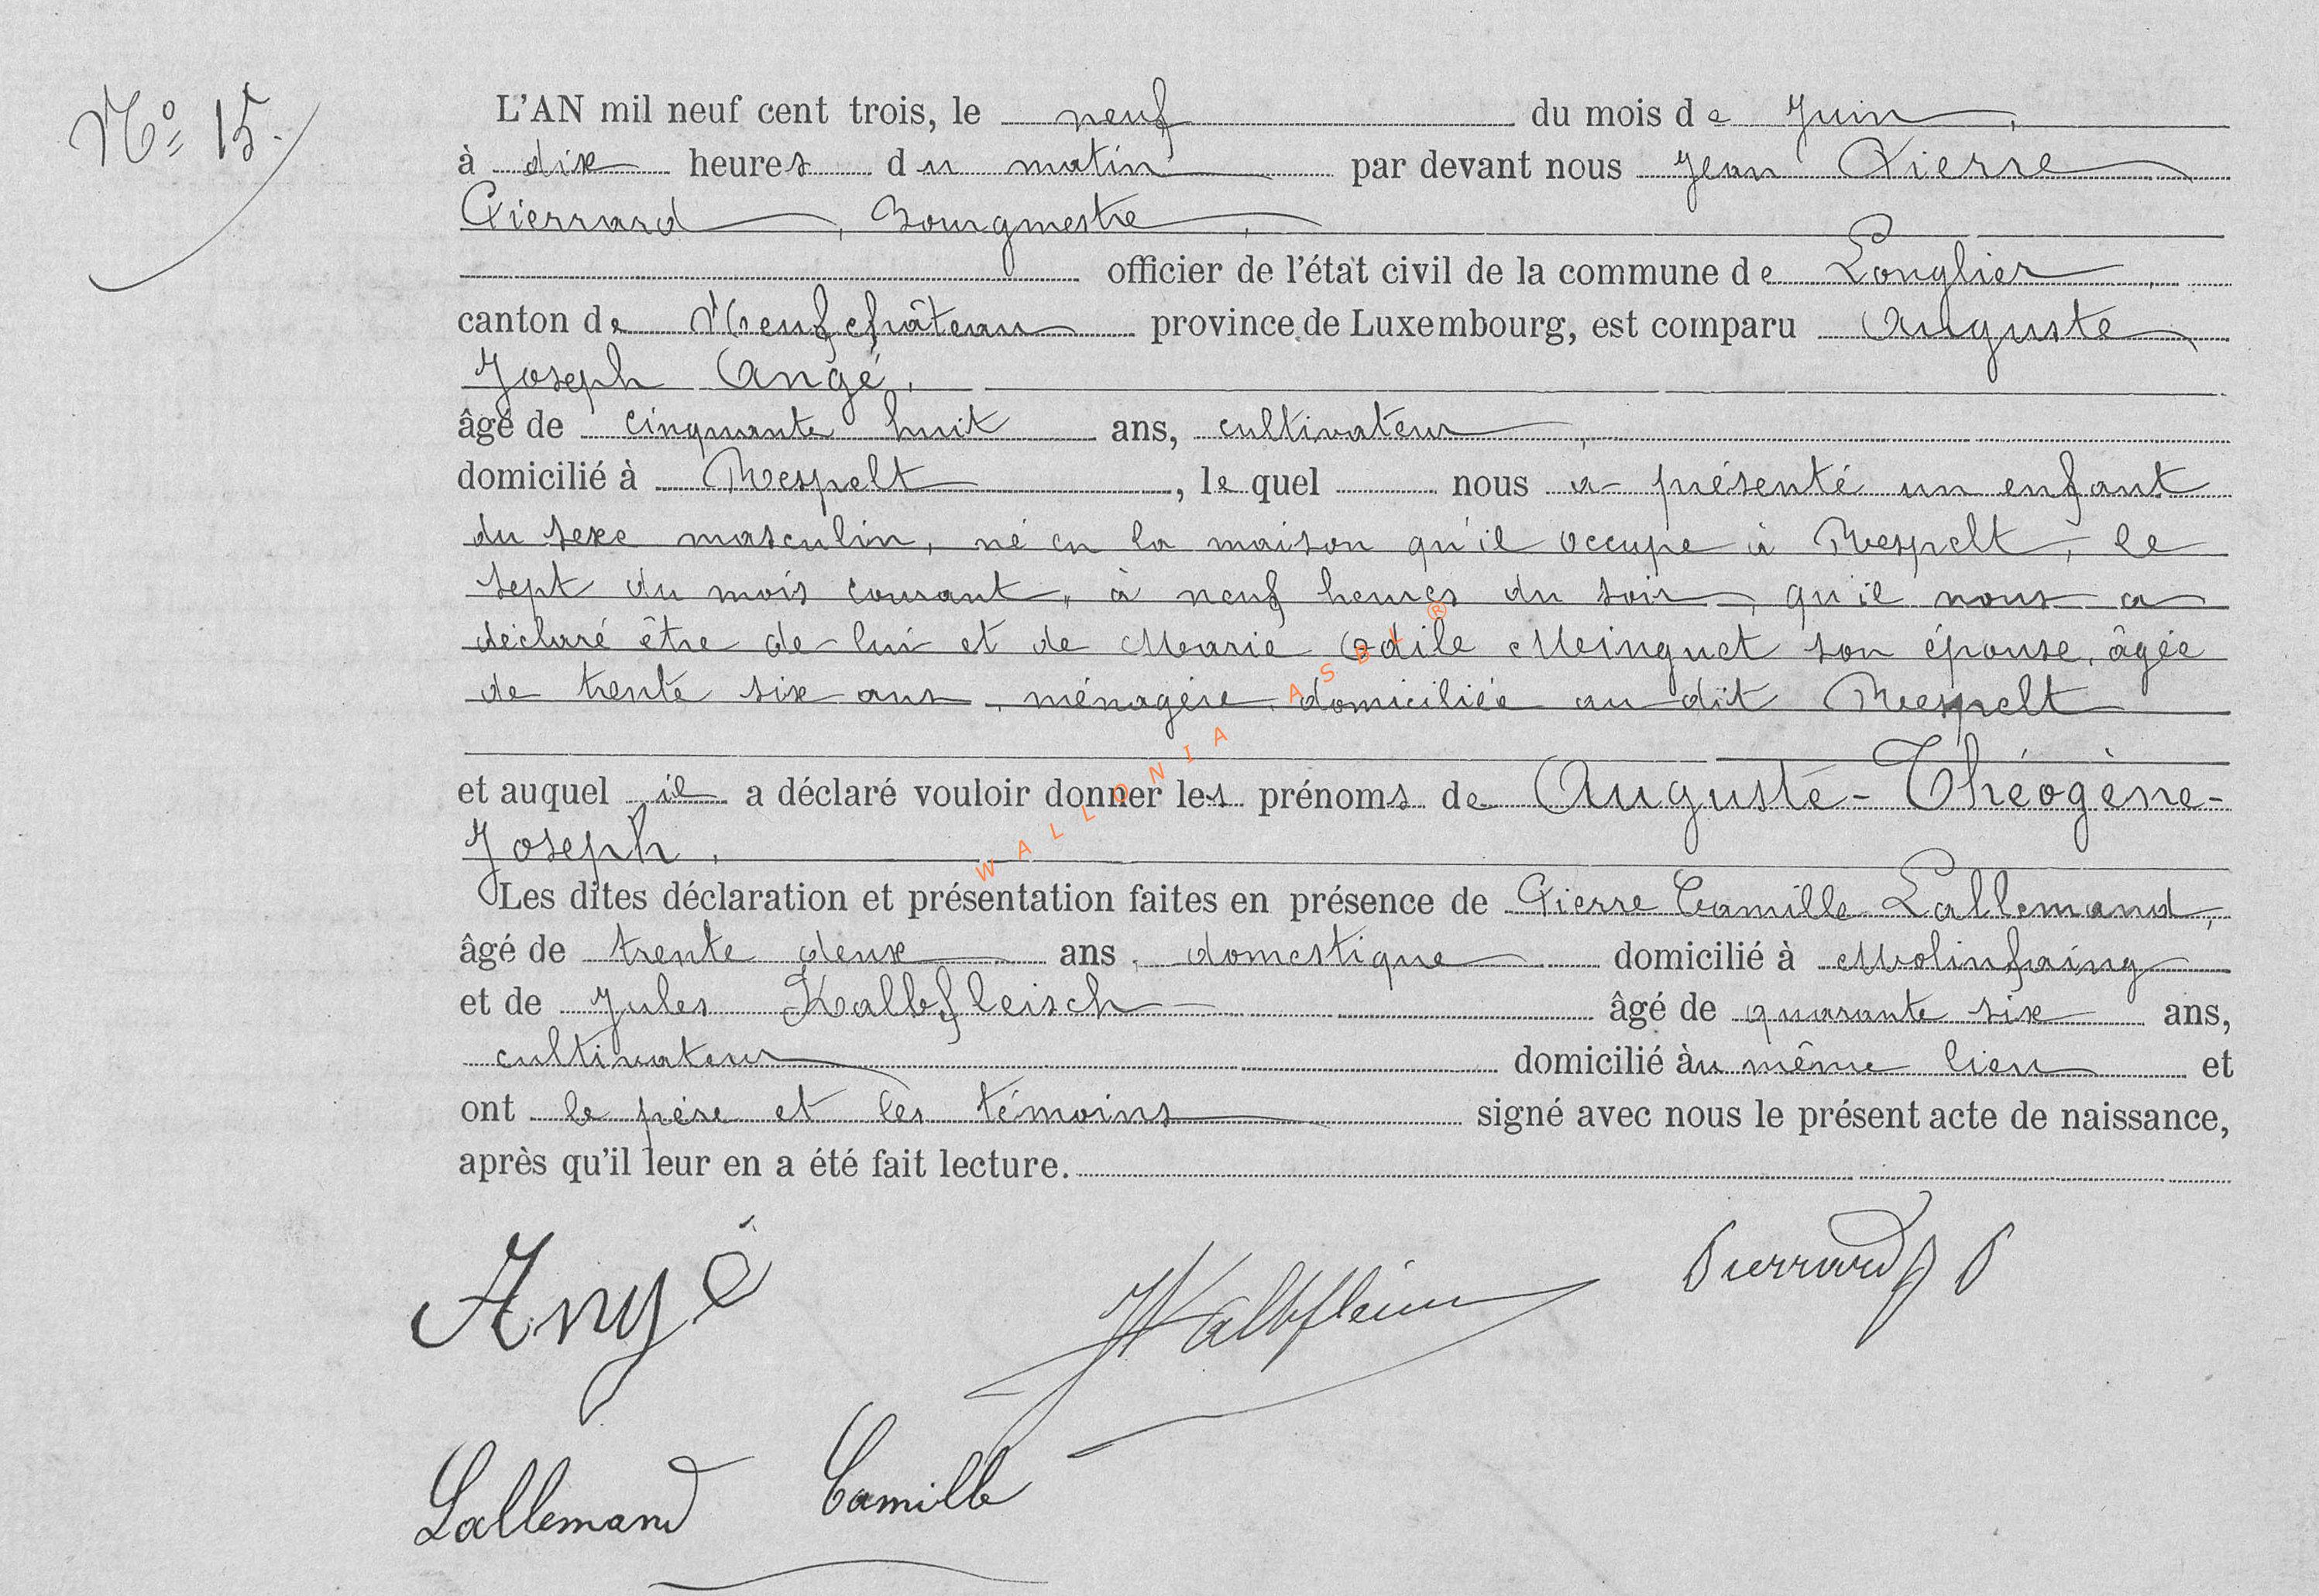 Nº 15.
L'AN mil neuf cent trois, le neuf du mois de Juin,
à dix heures du matin par devant nous Jean Pierre
Pierrard, Bourgmestre,
officier de l'état civil de la commune de Longlier
canton de Neufchâteau province de Luxembourg, est comparu Auguste
Joseph Angé,
âgé de cinquante huit ans, cultivateur,
domicilié à Respelt, le quel nous a présenté un enfant
du sexe masculin, né en la maison qu'il occupe à Respelt, le
sept du mois courant, à neuf heures du soir, qu'il nous a
déclaré être de lui et de Marie Odile Meinguet son épouse, âgée
de trente six ans, ménagère domiciliée au dit Respelt
et auquel il a déclaré vouloir donner les prénoms de Auguste-Théogène-
Joseph.
Les dites déclaration et présentation faites en présence de Pierre Camille Lallemand,
âgé de trente deux ans, domestique domicilié à Molinfaing
et de Jules Kalbfleisch âgé de quarante six ans,
cultivateur domicilié àu même lieu et
ont le père et les témoins signé avec nous le présent acte de naissance,
après qu'il leur en a été fait lecture.
WALLONIA ASBL ®
Angé JKalbfleisch Pierrard J P
Lallemand Camille